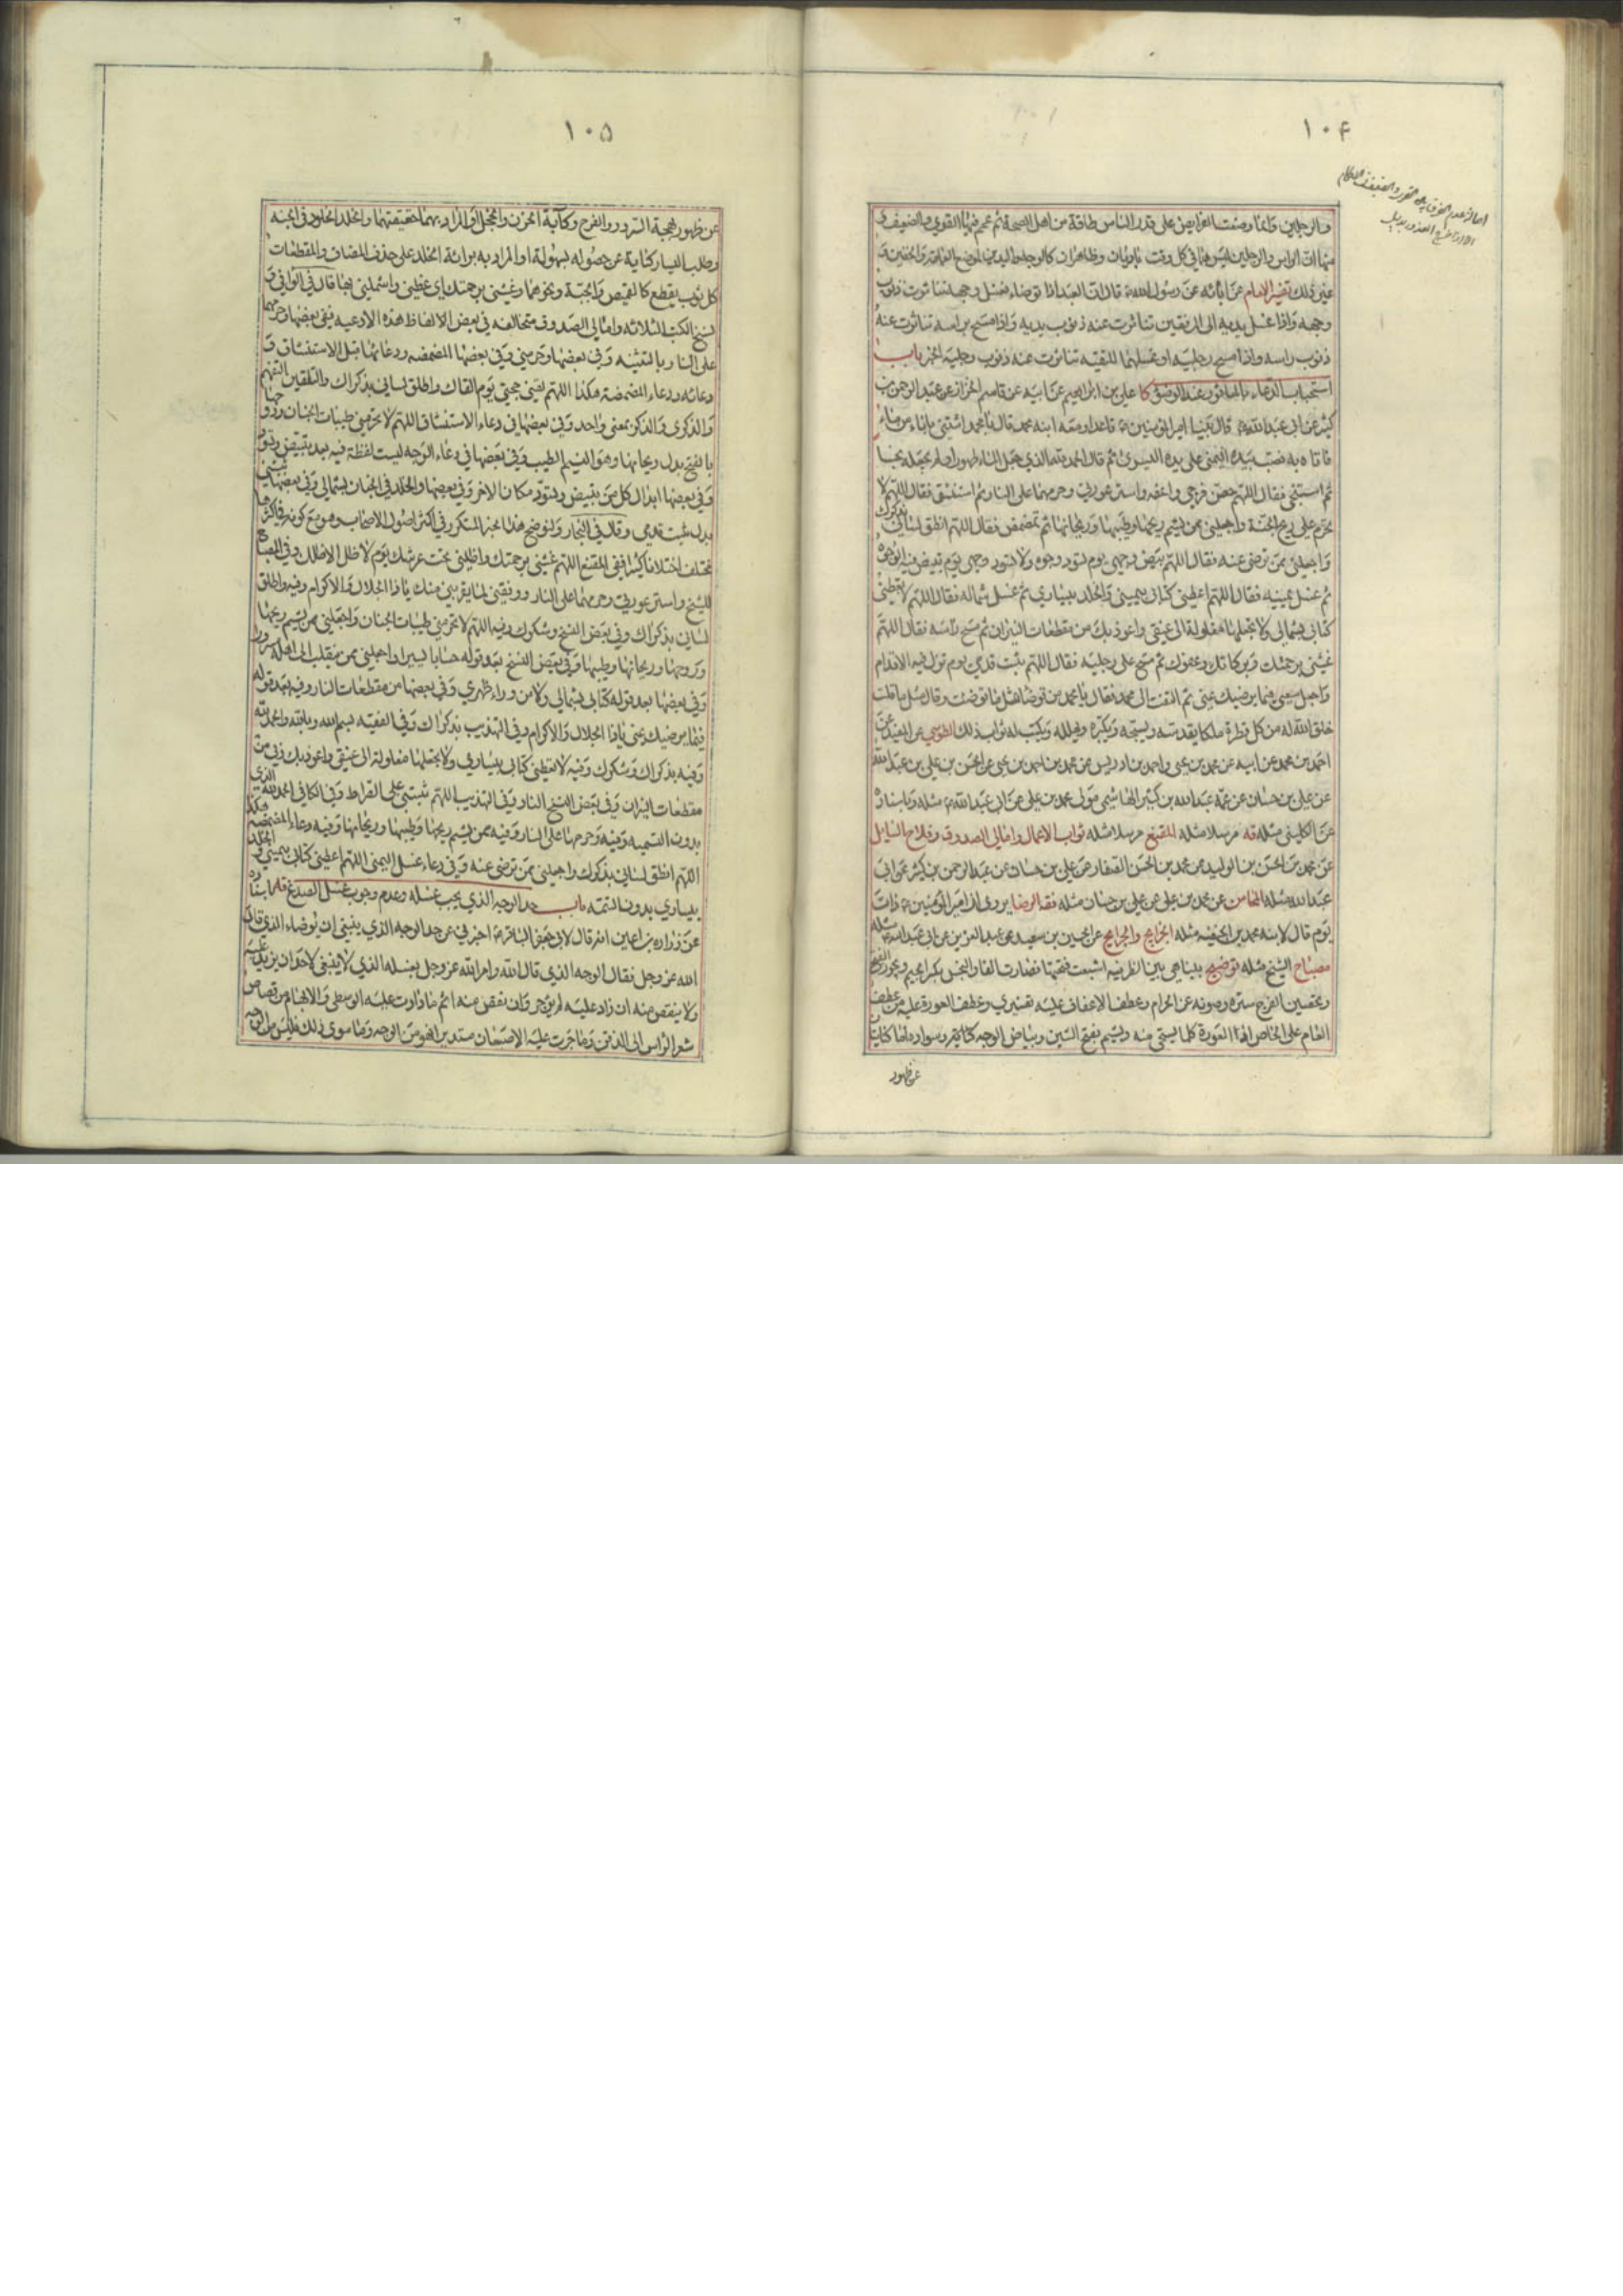 ١٠۴
والرجلين وانما وضعت الفرايض على قدر اقل الناس طاقة من اهل الصحة ثم عمم فيها القوي والضعيف
منها ان الراس والرجلين ليس هما في كل وقت باديان وظاهران كالوجه واليدين لموضع العمامة والخفين و
غير ذلك تفسير الامام عن آبائه عن رسول الله قال ان العبد اذا توضاء فغسل وجهه تناثرت ذنوب
وجهه واذا غسل يديه الى المرفقين تناثرت عنه ذنوب يديه واذا مسح براسه تناثرت عنه
ذنوب راسه واذا مسح رجليه او غسلهما للتقية تناثرت عنه ذنوب رجليه الخبر باب
استحباب الدعاء بالماثور عند الوضوء كا علي بن ابراهيم عن ابيه عن قاسم الخزاز عن عبد الرحمن بن
كثير عن ابي عبد الله قال بينا امير المؤمنين قاعد ومعه ابنه محمد قال يا محمد ائتني باناء من ماء
فاتاه به فصب بيده اليمنى على يده اليسرى ثم قال الحمد لله الذي جعل الماء طهورا ولم يجعله نجسا
ثم استنجى فقال اللهم حصن فرجي واعفه واستر عورتي وحرمهما على النار ثم استنشق فقال اللهم لا
تحرم علي ريح الجنة واجعلني ممن يشم ريحها وطيبها وريحانها ثم تمضمض فقال اللهم انطق لساني بذكرك
واجعلني ممن ترضى عنه فقال اللهم بيض وجهي يوم تسود وجوه ولا تسود وجهي يوم تبيض فيه الوجوه
ثم غسل يمينه فقال اللهم اعطني كتابي بيميني والخلد بيساري ثم غسل شماله فقال اللهم لا تعطني
كتابي بشمالي ولا تجعلها مغلولة الى عنقي واعوذ بك من مقطعات النيران ثم مسح راسه فقال اللهم
غشني برحمتك وبركاتك وعفوك ثم مسح على رجليه فقال اللهم ثبت قدمي يوم تزل فيه الاقدام
واجعل سعيي فيما يرضيك عني ثم التفت الى محمد فقال يا محمد من توضا مثل ما توضئت وقال مثل ما قلت
خلق الله له من كل قطرة ملكا يقدسه ويسبحه ويكبره ويهلله ويكتب له ثواب ذلك الطوسي عن المفيد عن
احمد بن محمد عن ابيه عن محمد بن يحيى واحمد بن ادريس عن محمد بن احمد بن يحيى عن الحسن بن علي بن عبد الله
عن علي بن حسان عن عمه عبد الله بن كثير الهاشمي مولى محمد بن علي عن ابي عبد الله مثله وباسناده
عن الكليني مثله قه مرسلا مثله المقنع مرسلا مثله ثواب الاعمال وامالي الصدوق وفلاح السايل
عن محمد بن الحسن بن الوليد عن محمد بن الحسن الصفار عن علي بن حسان عن عبد الرحمن بن كثير عن ابي
عبد الله مثله المحاسن عن محمد بن علي عن علي بن حسان مثله فقه الرضا يروى ان امير المؤمنين ذات
يوم قال لابنه محمد بن الحنفية مثله الخرايج والجرايح عن الحسين بن سعيد عن عبد العزيز عن ابي عبد الله مثله
مصباح الشيخ مثله توضيح
وتحصين الفرج ستره وصونه عن الحرام وعطف الاعفاف عليه تفسيري وعطف العورة عليه من عطف
العام على الخاص العورة كلما يستحى منه ويشم بفتح الشين وبياض الوجه كناية وسواده اما كنايتان
عن ظهور
١٠۵
عن ظهور بهجة السرور والفرح وكآبة الحزن والخجل او المراد بهما حقيقتهما والخلد الخلود في الجنة
وطلب اليسار كناية عن حصوله بسهولة او المراد به براءة الخلد على حذف المضاف والمقطعات
كل ثوب يقطع كالقميص والجبة ونحوهما وغشني برحمتك اي غطني واشملني بها قال في الوافي و
نسخ الكتب الثلاثة وامالي الصدوق متخالفة في بعض الالفاظ هذه الادعية ففي بعضها وحرمهما
على النار بالتثنية وفي بعضها وحرمني وفي بعضها المضمضة ودعائها قبل الاستنشاق و
دعائه ودعاء المضمضة هكذا اللهم لقني حجتي يوم القاك واطلق لساني بذكراك والتلقين التفهيم
والذكرى والذكر بمعنى واحد وفي بعضها في دعاء الاستنشاق اللهم لا تحرمني طيبات الجنان وروحها
بالفتح بدل ريحانها وهو النسيم الطيب وفي بعضها في دعاء الوجه ليست لفظة فيه بعد تبيض وتسود
وفي بعضها ابدال كل من تبيض وتسود مكان الاخر وفي بعضها والخلد في الجنان بشمالي وفي بعضها ثبتني
بدل ثبت قدمي وقال في البحار ولنوضح هذا الخبر المتكرر في اكثر اصول الاصحاب وهو مع كونه في اكثرها
مختلف اختلافا كثيرا ففي المقنع اللهم غشني برحمتك واظلني تحت عرشك يوم لا ظل الا ظلك وفي المصباح
للشيخ واستر عورتي وحرمهما على النار ووفقني لما يقربني منك يا ذا الجلال والاكرام وفيه واطلق
لساني بذكراك وفي بعض النسخ وشكرك وفيه اللهم لا تحرمني طيبات الجنان واجعلني ممن يشم ريحها
وروحها وريحانها وطيبها وفي بعض النسخ بعد قوله حسابا يسيرا واجعلني ممن ينقلب الى اهله مسرورا
وفي بعضها بعد قوله كتابي بشمالي ولا من وراء ظهري وفي بعضها من مقطعات النار وفيه بعد قوله
فيما يرضيك عني يا ذا الجلال والاكرام وفي التهذيب بذكراك وفي الفقيه بسم الله وبالله والحمد لله
وفيه بذكراك وشكرك وفيه لا تعطني كتابي بيساري ولا تجعلها مغلولة الى عنقي واعوذ بك ربي من
مقطعات النيران وفي بعض النسخ النار وفي التهذيب اللهم ثبتني على الصراط وفي الكافي الحمد لله الذي
بدون التسمية وفيه وحرمها على النار وفيه ممن يشم ريحها وطيبها وريحانها وفيه دعاء المضمضة هكذا
اللهم انطق لساني بذكرك واجعلني ممن ترضى عنه وفي دعاء غسل اليمنى اللهم اعطني كتابي بيميني والخلد
بيساري بدون التتمة باب حد الوجه الذي يجب غسله وعدم وجوب غسل الصدغ
عن زراره بن اعين انه قال لابي جعفر الباقر اخبرني عن حد الوجه الذي ينبغي ان يوضاء الذي قال
الله عز وجل فقال الوجه الذي قال الله وامر الله عز وجل بغسله الذي لا ينبغي لاحد ان يزيد عليه
ولا ينقص منه ان زاد عليه لم يؤجر وان نقص منه اثم ما دارت عليه الوسطى والابهام من قصاص
شعر الراس الى الذقن وما جرت عليه الاصبعان مستديرا فهو من الوجه وما سوى ذلك فليس من الوجه